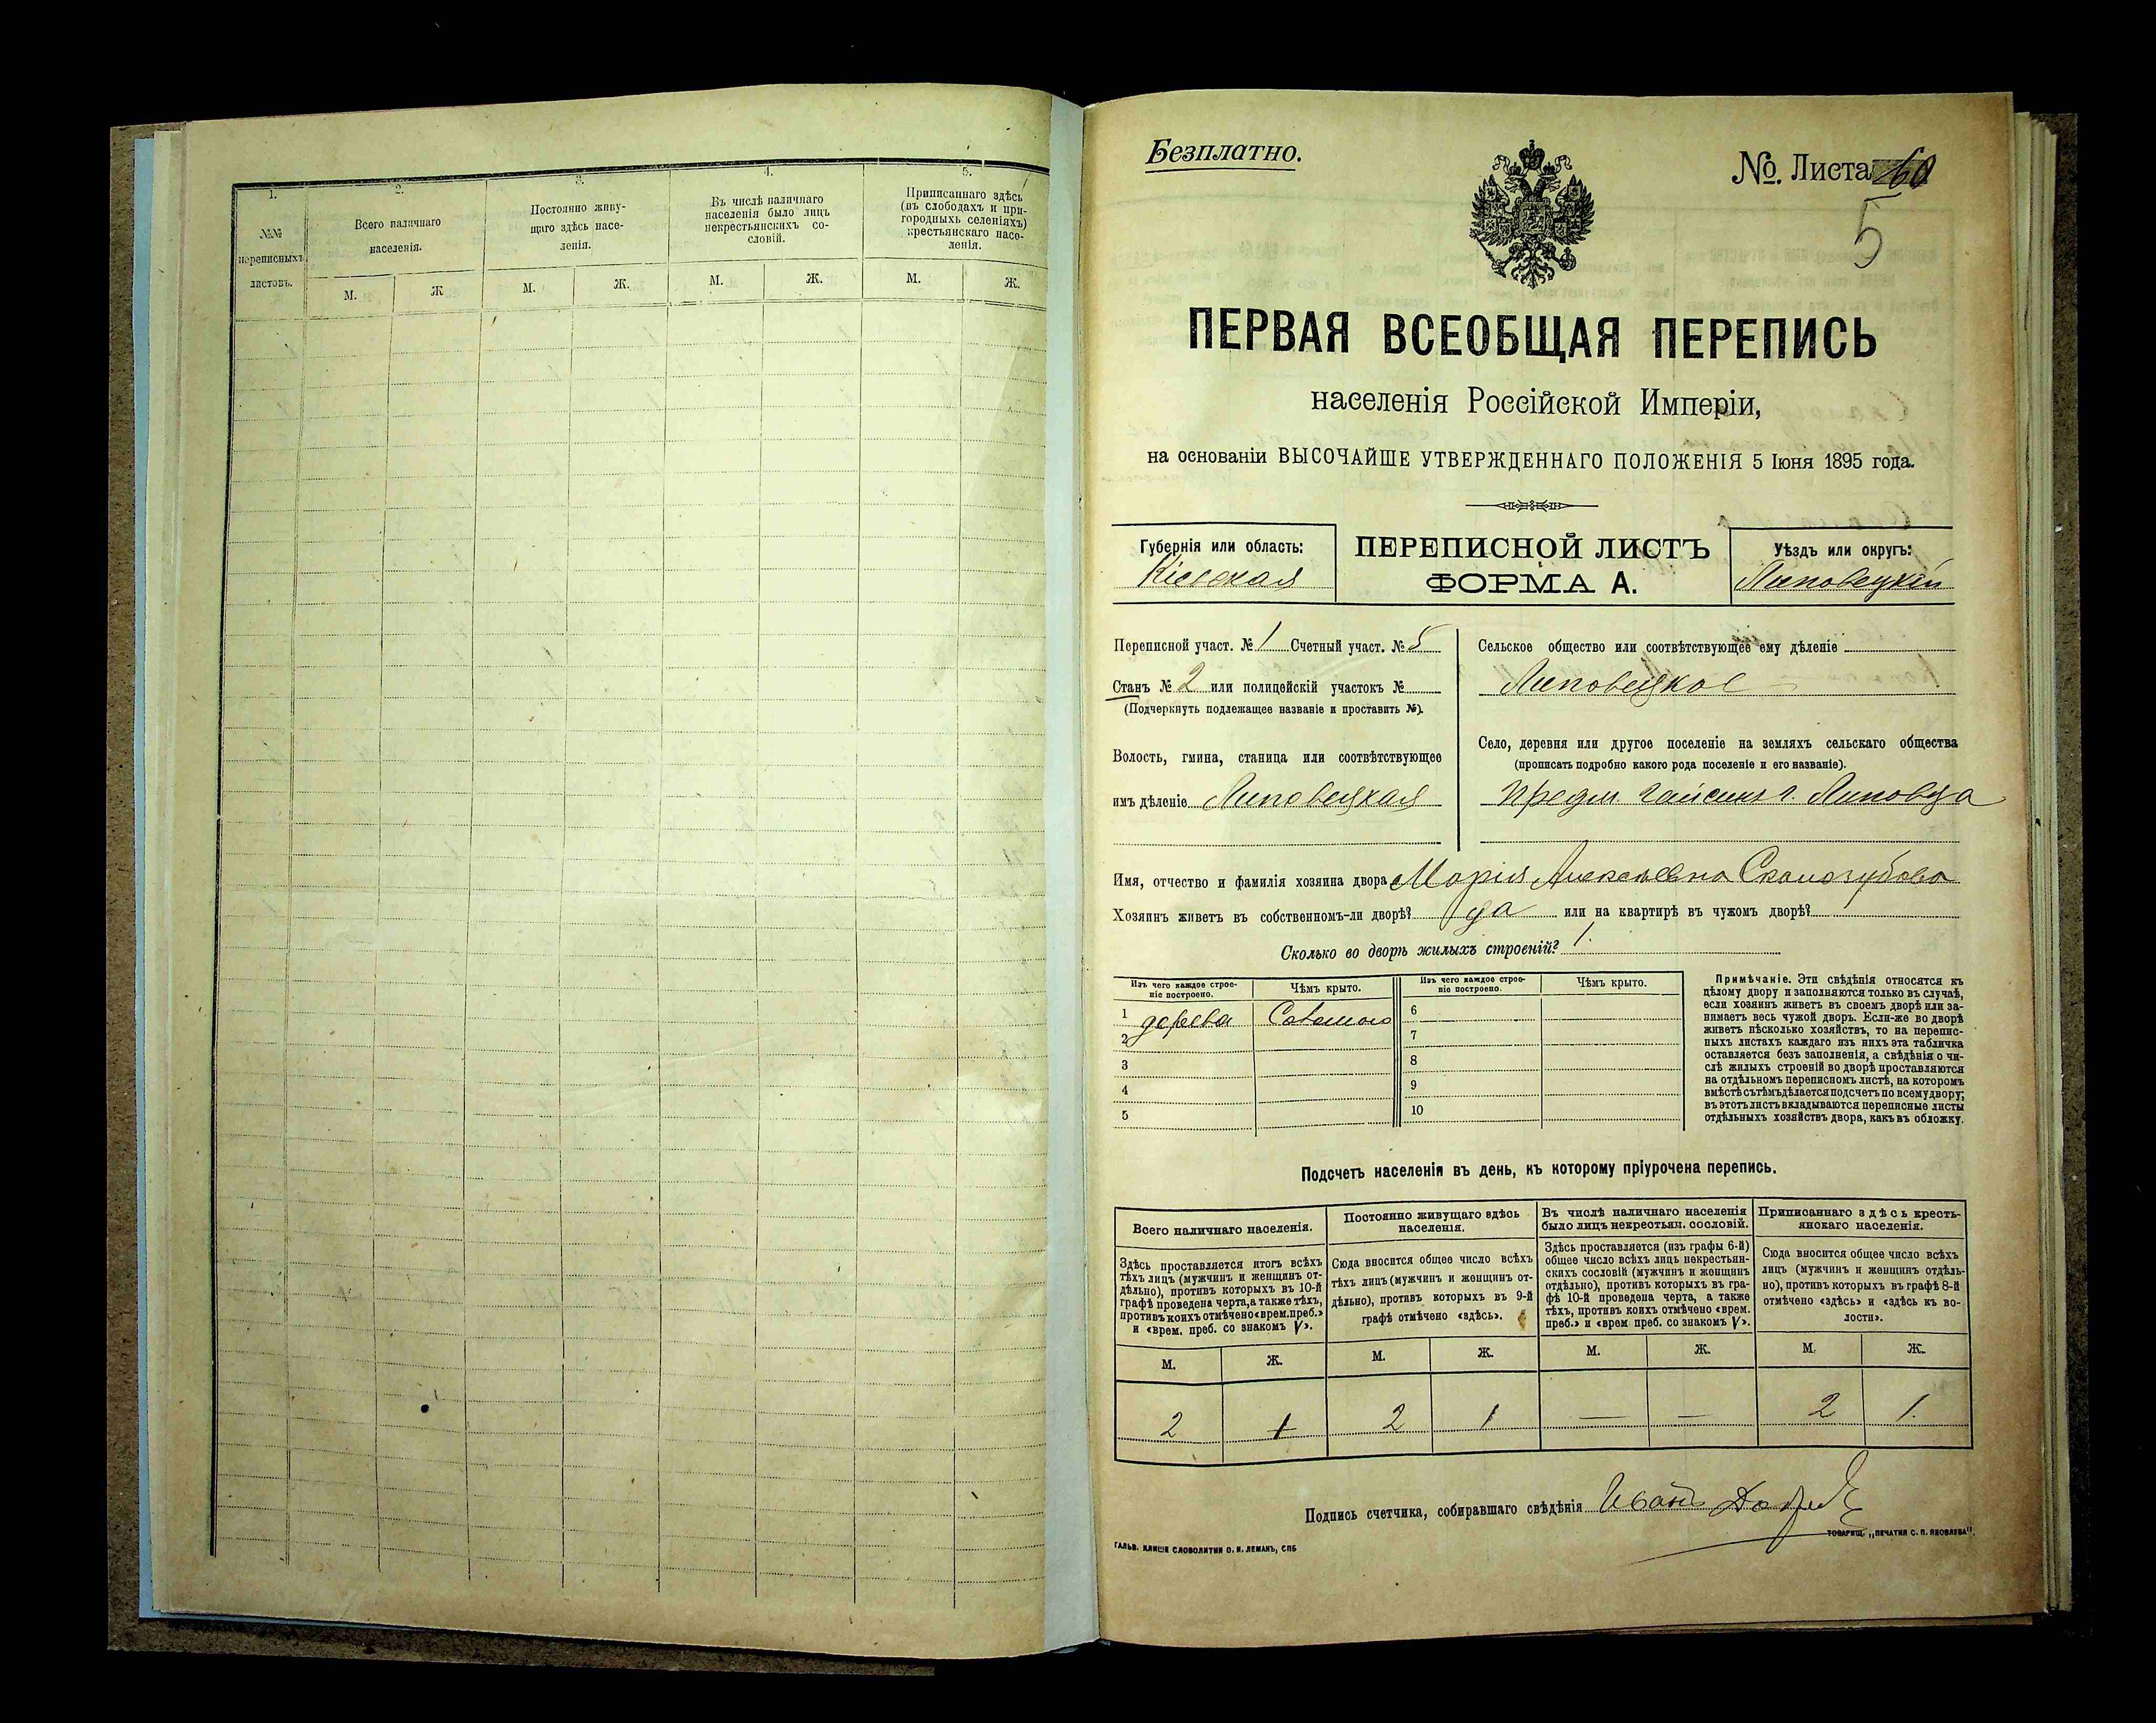 1.
2.
3.
4.
5.
№№
переписныхъ
листовъ.
Всего наличнаго
населенія.
Постоянно живу-
щаго здѣсь насе-
ленія.
Въ числѣ наличнаго
населенія было лицъ
некрестьянскихъ со-
словій.
Приписаннаго здѣсь
(въ слободахъ и при-
городныхъ селеніяхъ)
крестьянскаго насе-
ленія.
М. Ж М. Ж. М. Ж. М. Ж.
Безплатно.
№. Листа 60
5
ПЕРВАЯ ВСЕОБЩАЯ ПЕРЕПИСЬ
населенія Россійской Имперіи,
на основаніи ВЫСОЧАЙШЕ УТВЕРЖДЕННАГО ПОЛОЖЕНІЯ 5 Іюня 1895 года.
Губернія или область:
Кіевская
ПЕРЕПИСНОЙ ЛИСТЪ
ФОРМА А.
Уѣздъ или округъ:
Липовецкій
Переписной участ. № 1 Счетный участ. № 5
Станъ № 2 или полицейскій участокъ №
(Подчеркнуть подлежащее названіе и проставить №).
Волость, гмина, станица или соотвѣтствующее
имъ дѣленіе Липовецкая
Сельское общество или соотвѣтствующее ему дѣленіе
Липовецкое
Село, деревня или другое поселеніе на земляхъ сельскаго общества
(прописать подробно какого рода поселеніе и его названіе).
Предм. Гайсинъ г. Липовца
Имя, отчество и фамилія хозяина двора Марія Алексѣевна Скалозубова
Хозяинъ живетъ въ собственномъ-ли дворѣ? да или на квартирѣ въ чужомъ дворѣ?
Сколько во дворѣ жилыхъ строеній? 1.
Изъ чего каждое строе-
ніе построено.
Чѣмъ крыто.
Изъ чего каждое строе-
ніе построено.
Чѣмъ крыто.
1 дерева Соломою
2
3
4
5
6
7
8
9
10
Примѣчаніе. Эти свѣдѣнія относятся къ
цѣлому двору и заполняются только въ случаѣ,
если хозяинъ живетъ въ своемъ дворѣ или за-
нимаетъ весь чужой дворъ. Если-же во дворѣ
живетъ нѣсколько хозяйствъ, то на перепис-
ныхъ листахъ каждаго изъ нихъ эта табличка
оставляется безъ заполненія, а свѣдѣнія о чи-
слѣ жилыхъ строеній во дворѣ проставляются
на отдѣльномъ переписномъ листѣ, на которомъ
вмѣстѣ съ тѣмъ дѣлается подсчетъ по всему двору;
въ этотъ листъ вкладываются переписные листы
отдѣльныхъ хозяйствъ двора, какъ въ обложку.
Подсчетъ населенія въ день, къ которому пріурочена перепись.
Всего наличнаго населенія.
Здѣсь проставляется итогъ всѣхъ
тѣхъ лицъ (мужчинъ и женщинъ от-
дѣльно), противъ которыхъ въ 10-й
графѣ проведена черта, а также тѣхъ,
противъ коихъ отмѣчено «врем. преб.»
и «врем. преб. со знакомъ V».
Постоянно живущаго здѣсь
населенія.
Сюда вносится общее число всѣхъ
тѣхъ лицъ (мужчинъ и женщинъ от-
дѣльно), противъ которыхъ въ 9-й
графѣ отмѣчено «здѣсь».
Въ числѣ наличнаго населенія
было лицъ некрестьян. сословій.
Здѣсь проставляется (изъ графы 6-й)
общее число всѣхъ лицъ некрестьян-
скихъ сословій (мужчинъ и женщинъ
отдѣльно), противъ которыхъ въ гра-
фѣ 10-й проведена черта, а также
тѣхъ, противъ коихъ отмѣчено «врем.
преб.» и «врем преб. со знакомъ V».
Приписаннаго здѣсь кресть-
янскаго населенія.
Сюда вносится общее число всѣхъ
лицъ (мужчинъ и женщинъ отдѣль-
но), противъ которыхъ въ графѣ 8-й
отмѣчено «здѣсь» и «здѣсь къ во-
лости».
М. Ж. М. Ж. М. Ж. М. Ж.
2 1 2 1 — — 2 1.
Подпись счетчика, собиравшаго свѣдѣнія Иванъ
ТОВАРИЩ. „ПЕЧАТНЯ С. П. ЯКОВЛЕВА".
ГАЛЬВ. КЛИШЕ СЛОВОЛИТНИ О. И. ЛЕМАНЪ, СПБ